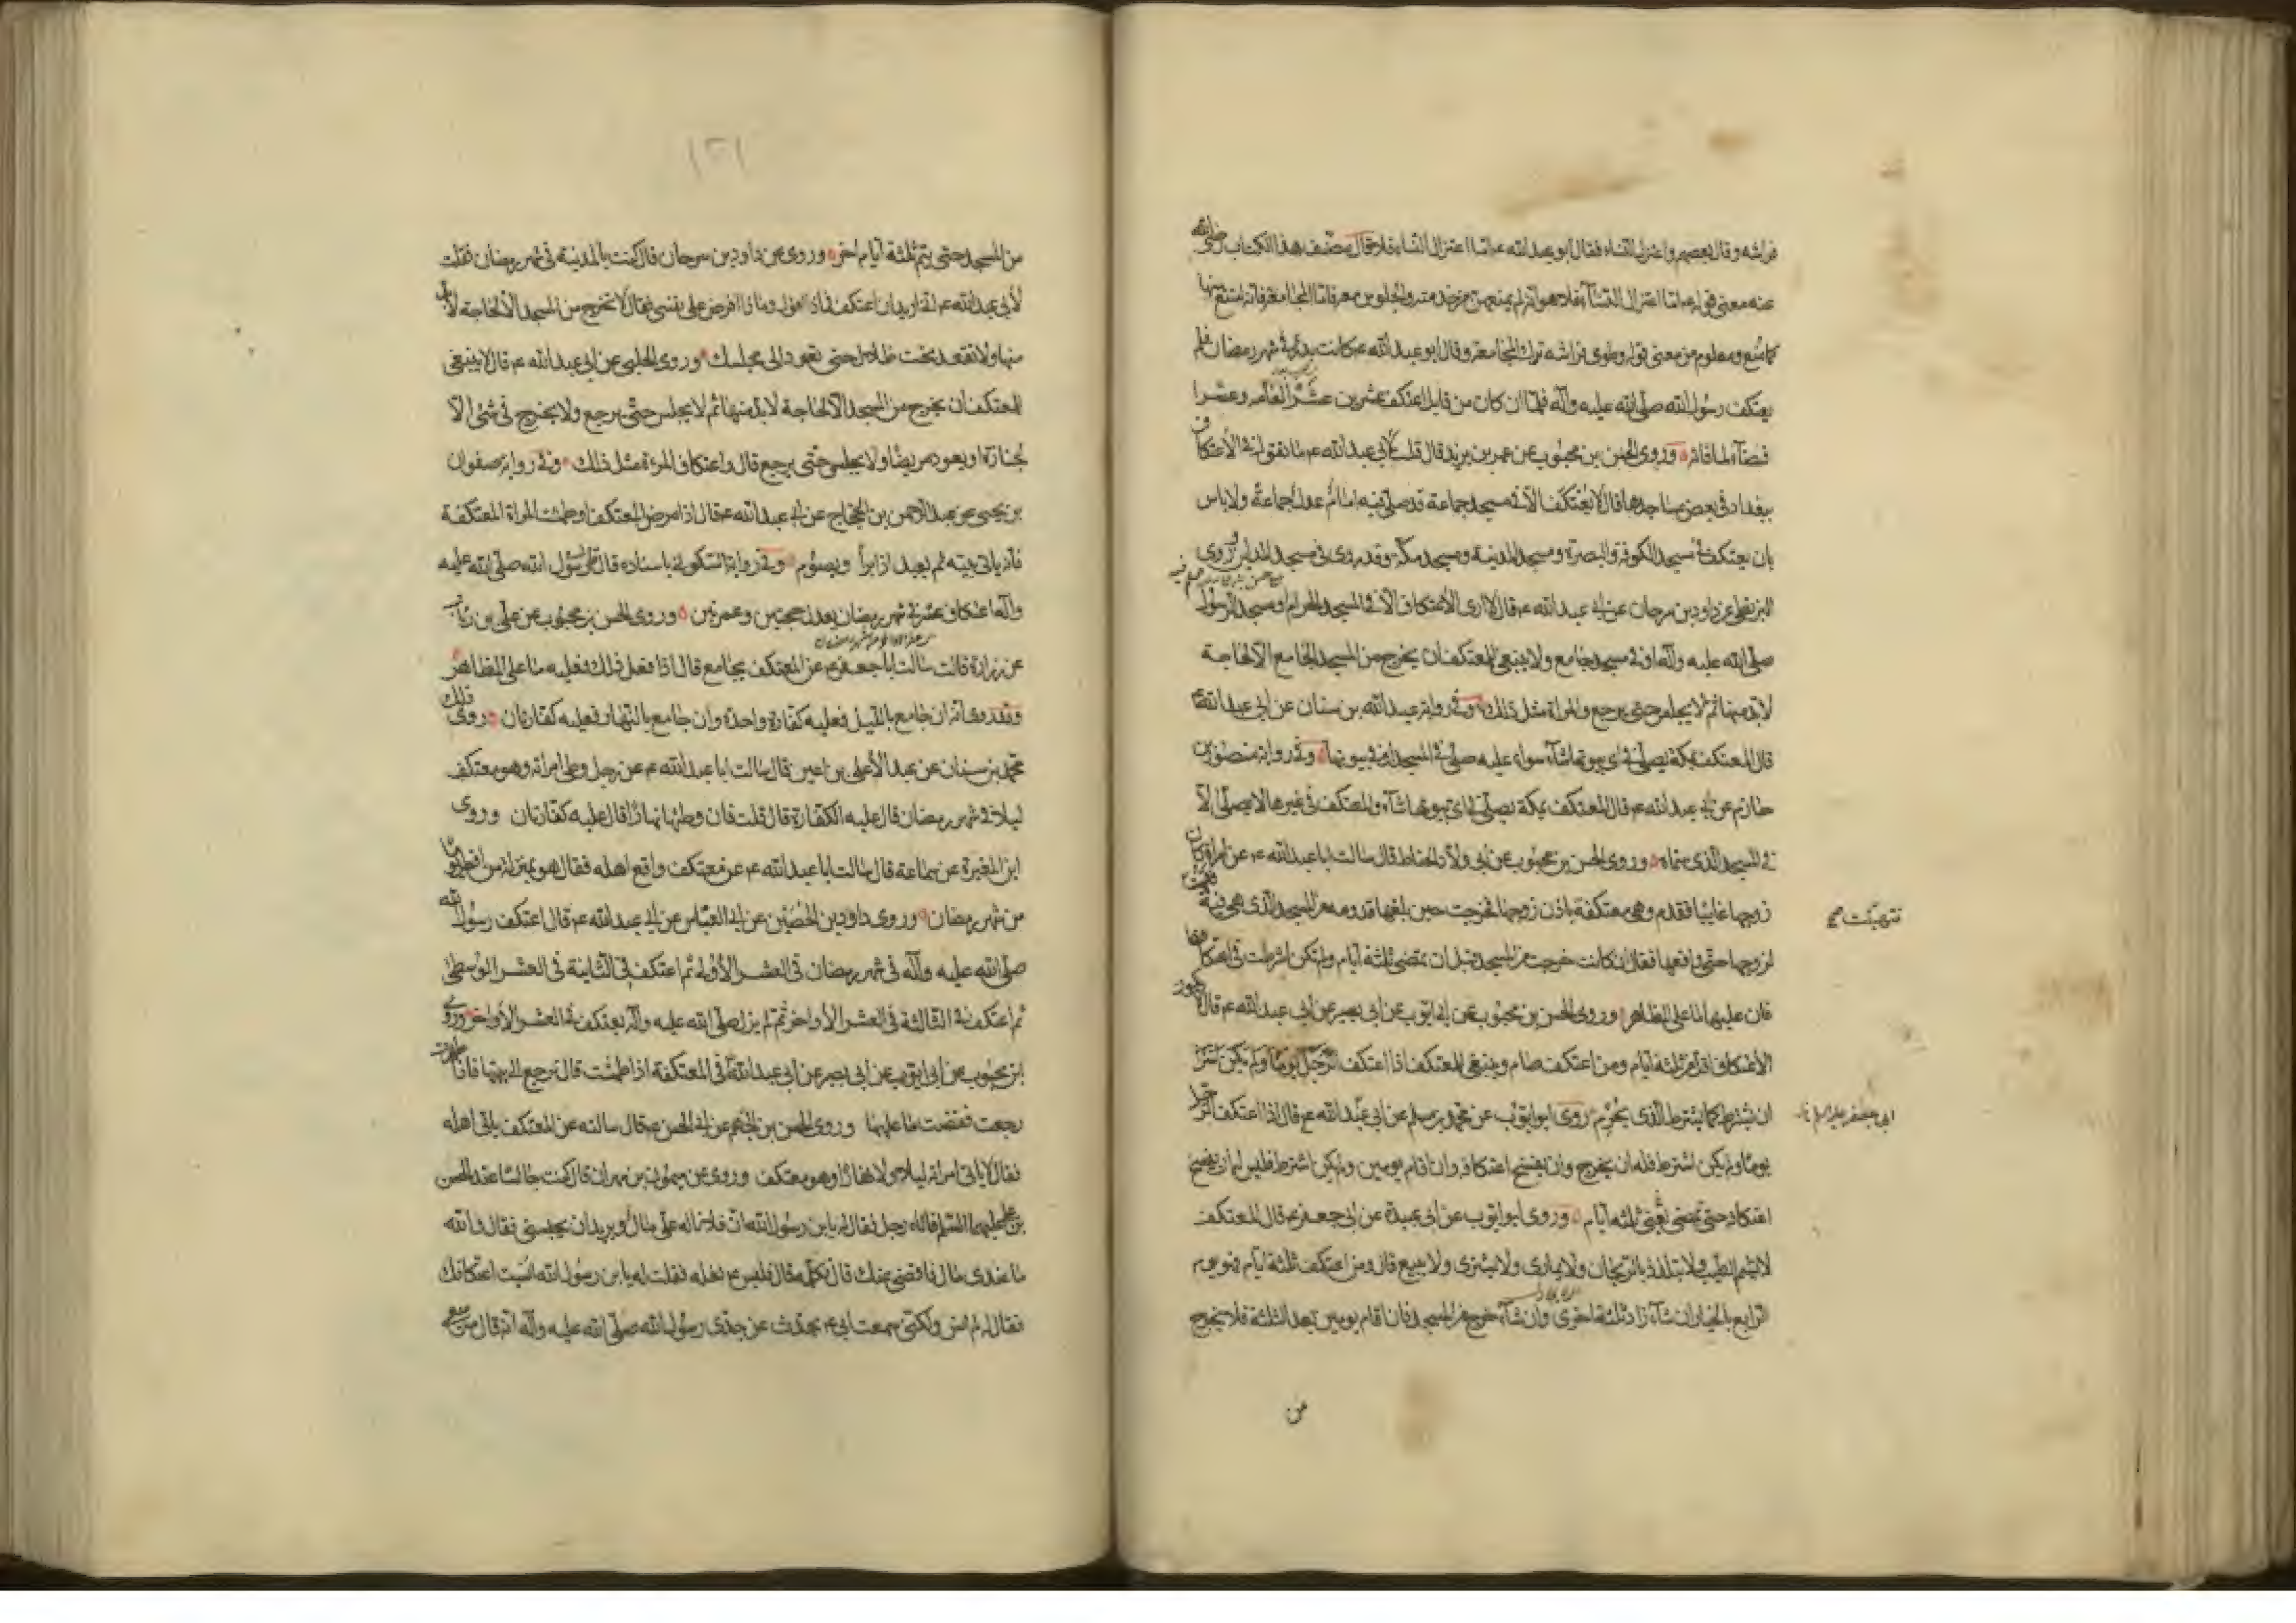 فراشه وقال بعضهم واعتزل النساء فقال ابو عبد الله ع اما اعتزال النساء فلا وقال مصنف هذا الكتاب رضى الله
عنه معنى قوله ع اما اعتزال النساء فلا هو انه لم يمنعهن من خدمته والجلوس معه فاما المجامعة فانه امتنع منها
كما منع ومعلوم من معنى قوله وطوى فراشه ترك المجامعة وقال ابو عبد الله ع كانت بدر فى شهر رمضان فلم
يعتكف رسول الله صلى الله عليه وآله فلما ان كان من قابل اعتكف عشرين عشرا لعامه وعشرا
قضآء لما فاته وروى الحسن بن محبوب عن عمر بن يزيد قال قلت لأبى عبد الله ع ما تقول فى الأعتكاف
ببغداد فى بعض مساجدها قال لا يعتكف الا فى مسجد جماعة قد صلى فيه امام عدل جماعة ولا باس
بان يعتكف فى مسجد الكوفة والبصرة ومسجد المدينة ومسجد مكة وقد روى فى مسجد المداين وروى
البزنطى عن داود بن سرحان عن ابى عبد الله ع قال لا ارى الأعتكاف الا فى المسجد الحرام او مسجد الرسول
صلى الله عليه وآله او فى مسجد جامع ولا ينبغى للمعتكف ان يخرج من المسجد الجامع الا لحاجة
لا بد منها ثم لا يجلس حتى يرجع والمراة مثل ذلك وفى رواية عبد الله بن سنان عن ابى عبد الله ع
قال المعتكف بمكة يصلى فى اى بيوتها شآء سواء عليه صلى فى المسجد او فى بيوتها وفى رواية منصور بن
حازم عن ابى عبد الله ع قال المعتكف بمكة يصلى فى اى بيوتها شآء والمعتكف فى غيرها لا يصلى الا
فى المسجد الذى سماه وروى الحسن بن محبوب عن ابى ولاد الحناط قال سالت ابا عبد الله ع عن امراة كان
زوجها غايبا فقدم وهى معتكفة باذن زوجها فخرجت حين بلغها قدومه من المسجد الذى هى فيه فتهيات
فتهيأت صح
لزوجها حتى واقعها فقال ان كانت خرجت من المسجد قبل ان تمضى ثلثة ايام ولم تكن اشترطت فى اعتكافها
فان عليها ما على المظاهر وروى الحسن بن محبوب عن ابى ايوب عن ابى بصير عن ابى عبد الله ع قال لا يكون
الأعتكاف اقل من ثلثة ايام ومن اعتكف صام وينبغى للمعتكف اذا اعتكف
ان يشترط كما يشترط الذى يحرم وروى ابو ايوب عن محمد بن مسلم عن ابى عبد الله ع قال اذا اعتكف الرجل
ابى جعفر عليه السلام
يوما ولم يكن اشترط فله ان يخرج وان يفسخ اعتكافه وان اقام يومين ولم يكن اشترط فليس له ان يفسخ
اعتكافه حتى تمضى ثلثة ايام وروى ابو ايوب عن ابى عبيدة عن ابى جعفر ع قال المعتكف
لا يشم الطيب ولا يتلذذ بالريحان ولا يمارى ولا يشترى ولا يبيع قال ومن اعتكف ثلثة ايام فهو يوم
الرابع بالخيار ان شآء زاد ثلثة اخرى وان شآء خرج من المسجد فان اقام يومين بعد الثلثة فلا يخرج
من
١٢١
من المسجد حتى يتم ثلثة ايام اخر وروى عن داود بن سرحان قال كنت بالمدينة فى شهر رمضان فقلت
لأبى عبد الله ع انى اريد ان اعتكف فماذا اقول وماذا افرض على نفسى فقال لا تخرج من المسجد الا لحاجة لا بد
منها ولا تقعد تحت ظلال حتى تعود الى مجلسك وروى الحلبى عن ابى عبد الله ع قال لا ينبغى
للمعتكف ان يخرج من المسجد الا لحاجة لا بد منها ثم لا يجلس حتى يرجع ولا يخرج فى شئ الا
لجنازة او يعود مريضا ولا يجلس حتى يرجع قال واعتكاف المرءة مثل ذلك وفى رواية صفوان
بن يحيى عن عبد الرحمن بن الحجاج عن ابى عبد الله ع قال اذا مرض المعتكف او طمثت المراة المعتكفة
فانه ياتى بيته ثم يعيد اذا برأ ويصوم وفى رواية السكونى باسناده قال قال رسول الله صلى الله عليه
وآله اعتكاف عشر فى شهر رمضان يعدل حجتين وعمرتين وروى الحسن بن محبوب عن على بن رئاب
عن زرارة قال سالت ابا جعفر ع عن المعتكف يجامع قال اذا فعل ذلك فعليه ما على المظاهر
وقد روى انه ان جامع بالليل فعليه كفارة واحدة وان جامع بالنهار فعليه كفارتان روى ذلك
محمد بن سنان عن عبد الأعلى بن اعين قال سالت ابا عبد الله ع عن رجل وطى امراته وهو معتكف
ليلا فى شهر رمضان قال عليه الكفارة قال قلت فان وطئها نهارا قال عليه كفارتان وروى
ابن المغيرة عن سماعة قال سالت ابا عبد الله ع عن معتكف واقع اهله فقال هو بمنزلة من افطر يوما
من شهر رمضان وروى داود بن الحصين عن ابى العباس عن ابى عبد الله ع قال اعتكف رسول الله
صلى الله عليه وآله فى شهر رمضان فى العشر الأولى ثم اعتكف فى الثانية فى العشر الوسطى
ثم اعتكف فى الثالثة فى العشر الأواخر ثم لم يزل صلى الله عليه وآله يعتكف فى العشر الأواخر وروى
ابن محبوب عن ابى ايوب عن ابى بصير عن ابى عبد الله ع فى المعتكفة اذا طمثت قال ترجع الى بيتها فاذا طهرت
رجعت فقضت ما عليها وروى الحسن بن الجهم عن ابى الحسن ع قال سالته عن المعتكف ياتى اهله
فقال لا ياتى امراته ليلا ولا نهارا وهو معتكف وروى عن ميمون بن مهران قال كنت جالسا عند الحسن
بن على عليهما السلم فاتاه رجل فقال له يا ابن رسول الله ان فلانا له على مال ويريد ان يحبسنى فقال والله
ما عندى مال فاقضى عنك قال فكلمه قال فلبس ع نعله فقلت له يا بن رسول الله انسيت اعتكافك
فقال لم انس ولكنى سمعت ابى ع يحدث عن جدى رسول الله صلى الله عليه وآله انه قال من سعى